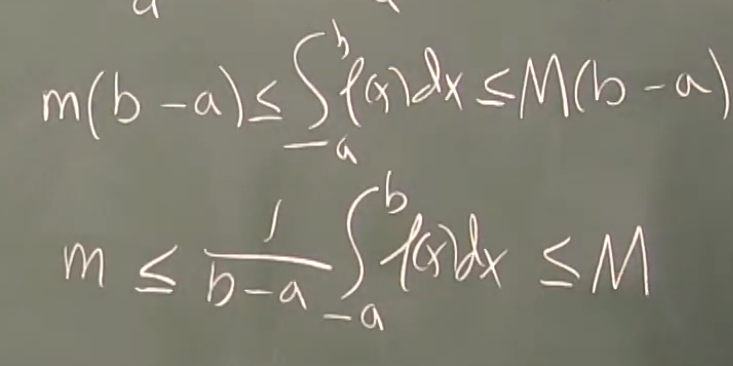 m(b-a) ≤ ∫_{-a}^{b} f(x)dx ≤ M(b-a)
m ≤ \frac{1}{b-a} ∫_{-a}^{b} f(x)dx ≤ M